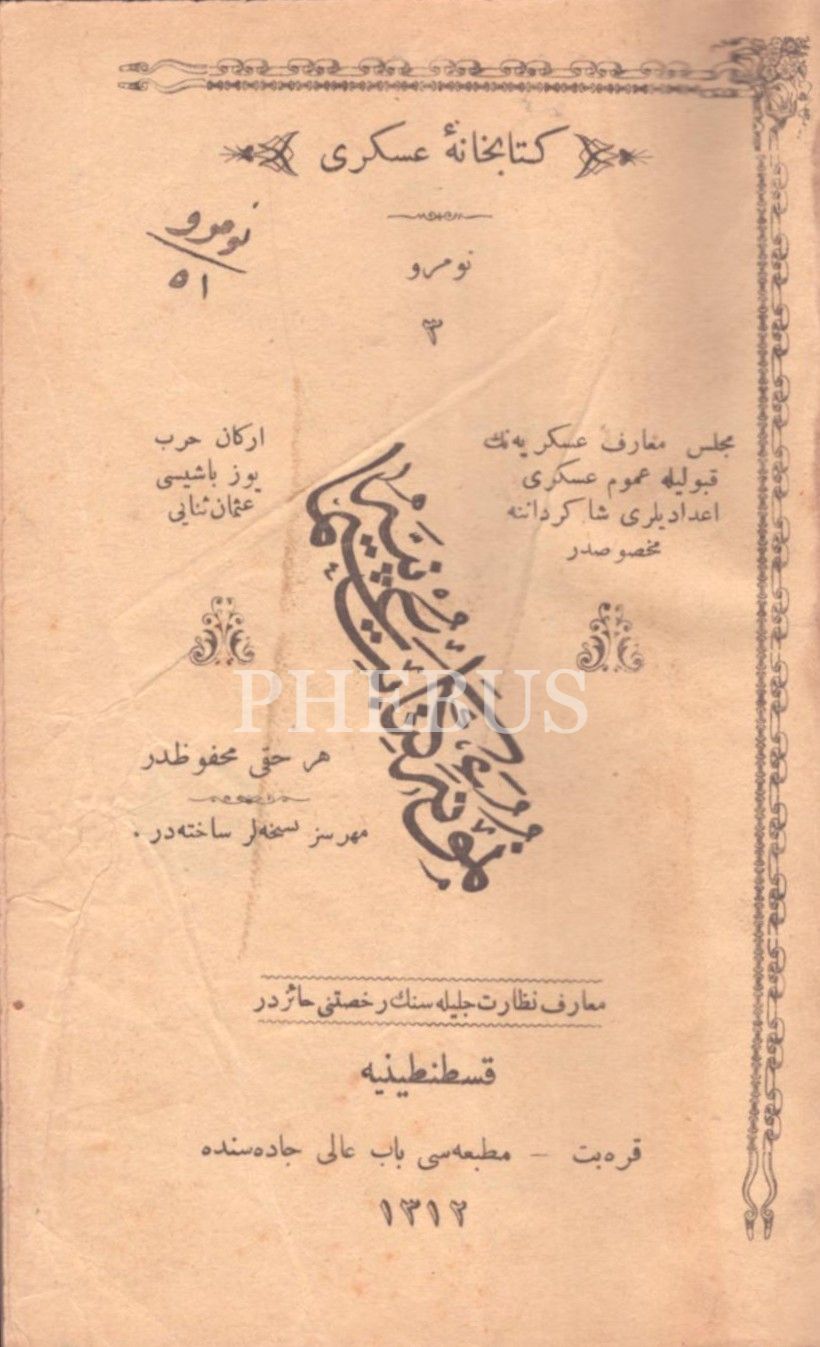 كتابخانهٔ عسكری
نومرو
٥١
نومرو
٣
مجلس معارف عسكریه‌نك
قبولیله عموم عسكری
اعدادیلری شاكرداننه
مخصوصدر
اركان حرب
یوزباشیسی
عثمان ثنایی
PHEBUS
هر حقی محفوظدر
مهرسز نسخه‌لر ساخته‌در.
معارف نظارت جلیله‌سنك رخصتنی حائزدر
قسطنطینیه
قره‌بت – مطبعه‌سی باب عالی جاده‌سنده
١٣١٢